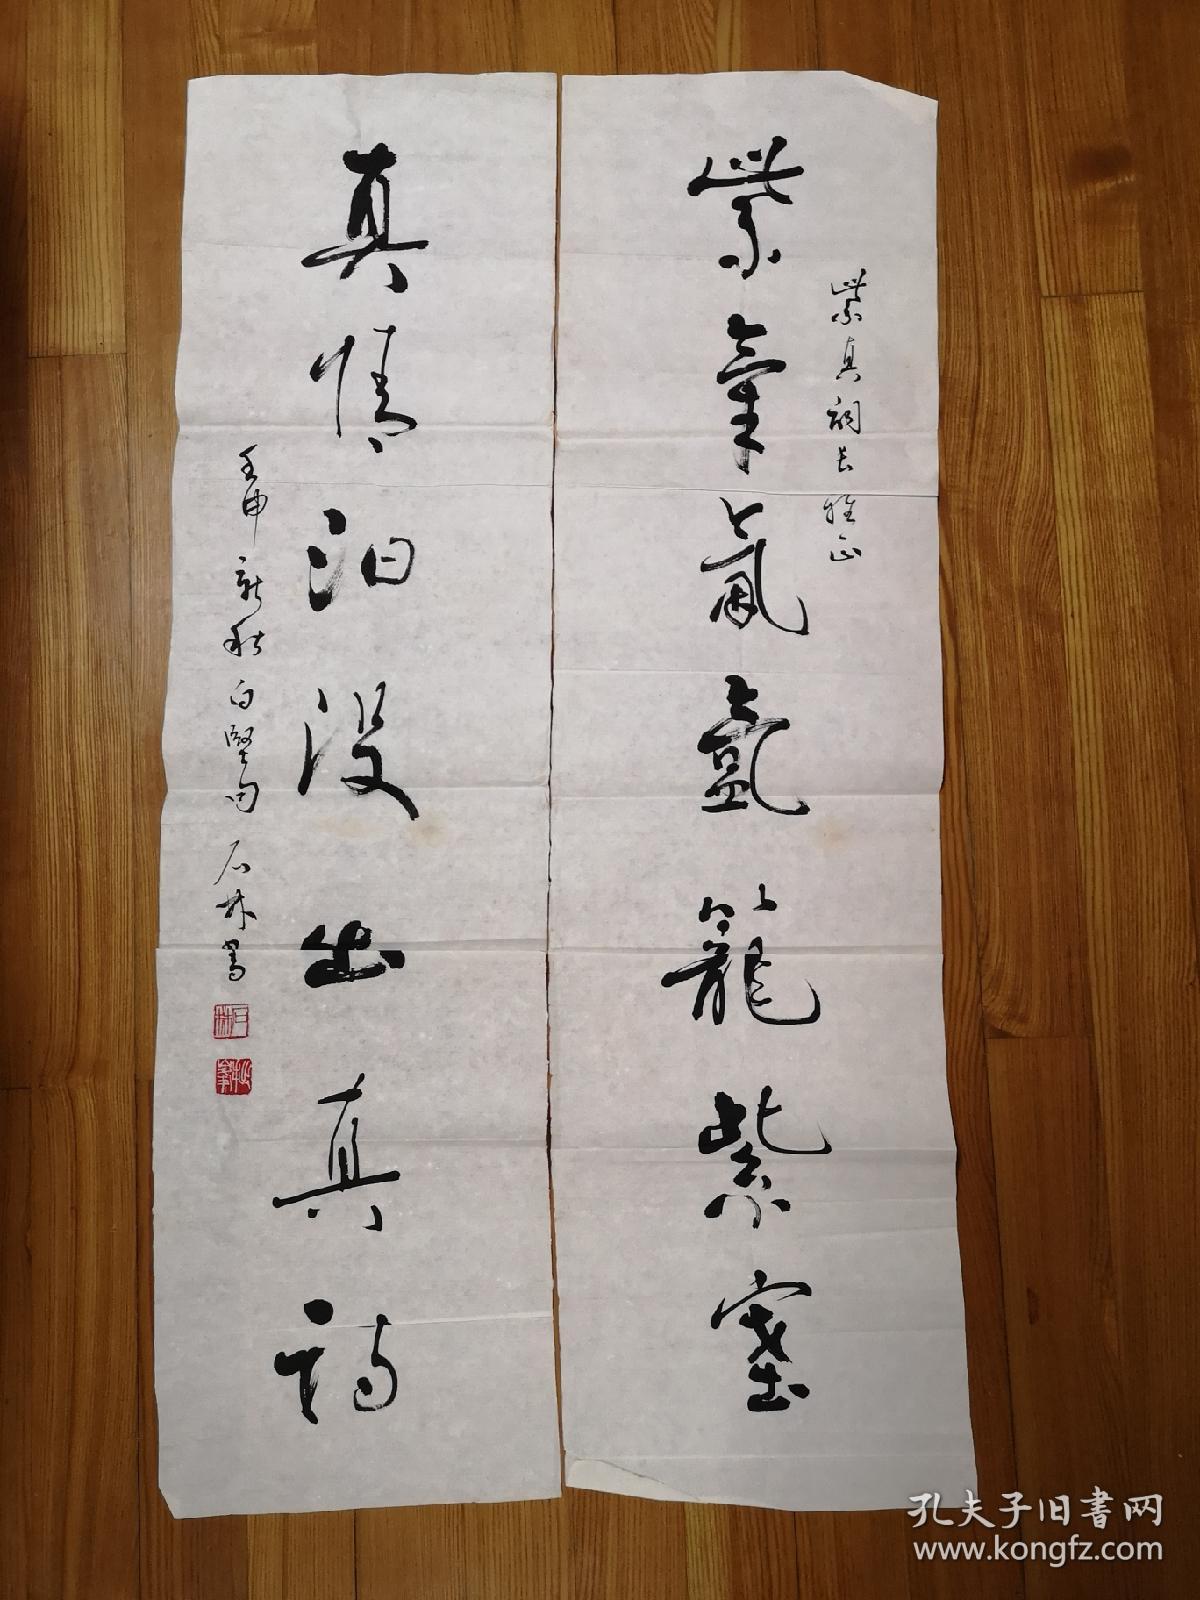 紫真词长雅正
紫气氤氲笼紫塞
真情汩没出真词
壬申新秋白坚句石林书
石林
孔夫子旧书网
www.kongfz.com